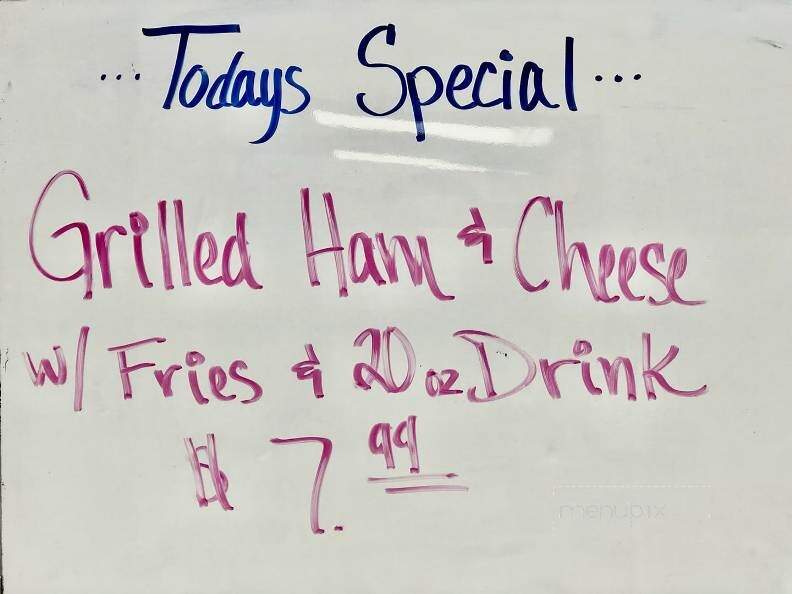 ...Todays Special...
Grilled Ham & Cheese
w/ Fries & 20 oz Drink
$7.99
menupix